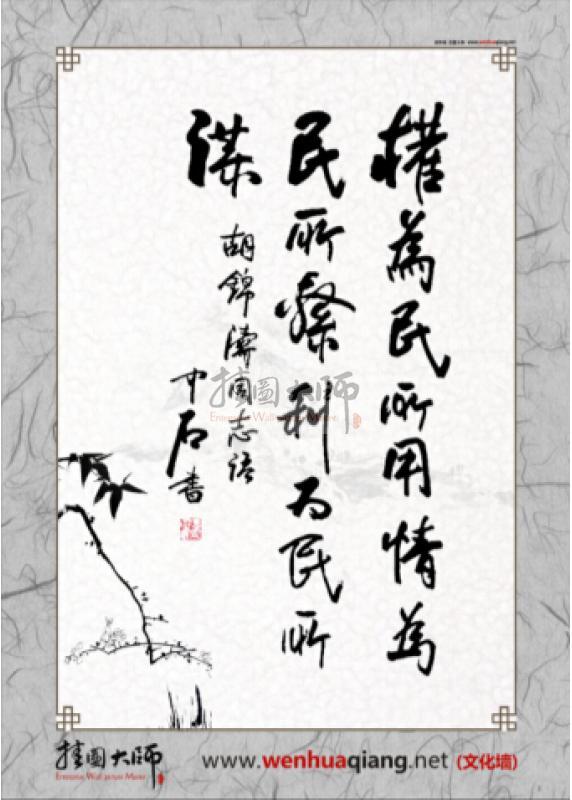 www.wenhuaqiang.net
權為民所用情為
民所繫利为民所
謀
胡錦濤同志語
中石書
挂圖大師
挂圖大師
www.wenhuaqiang.net (文化墙)